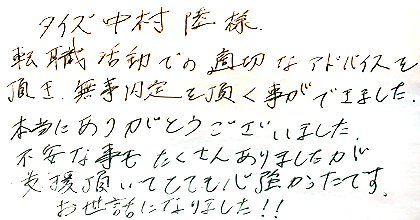 タイズ 中村 陸 様.
転職活動での適切なアドバイスを
頂き、無事内定を頂く事ができました.
本当にありがとうございました.
不安な事もたくさんありましたが
支援頂いてとても心強かったです.
お世話になりました!!